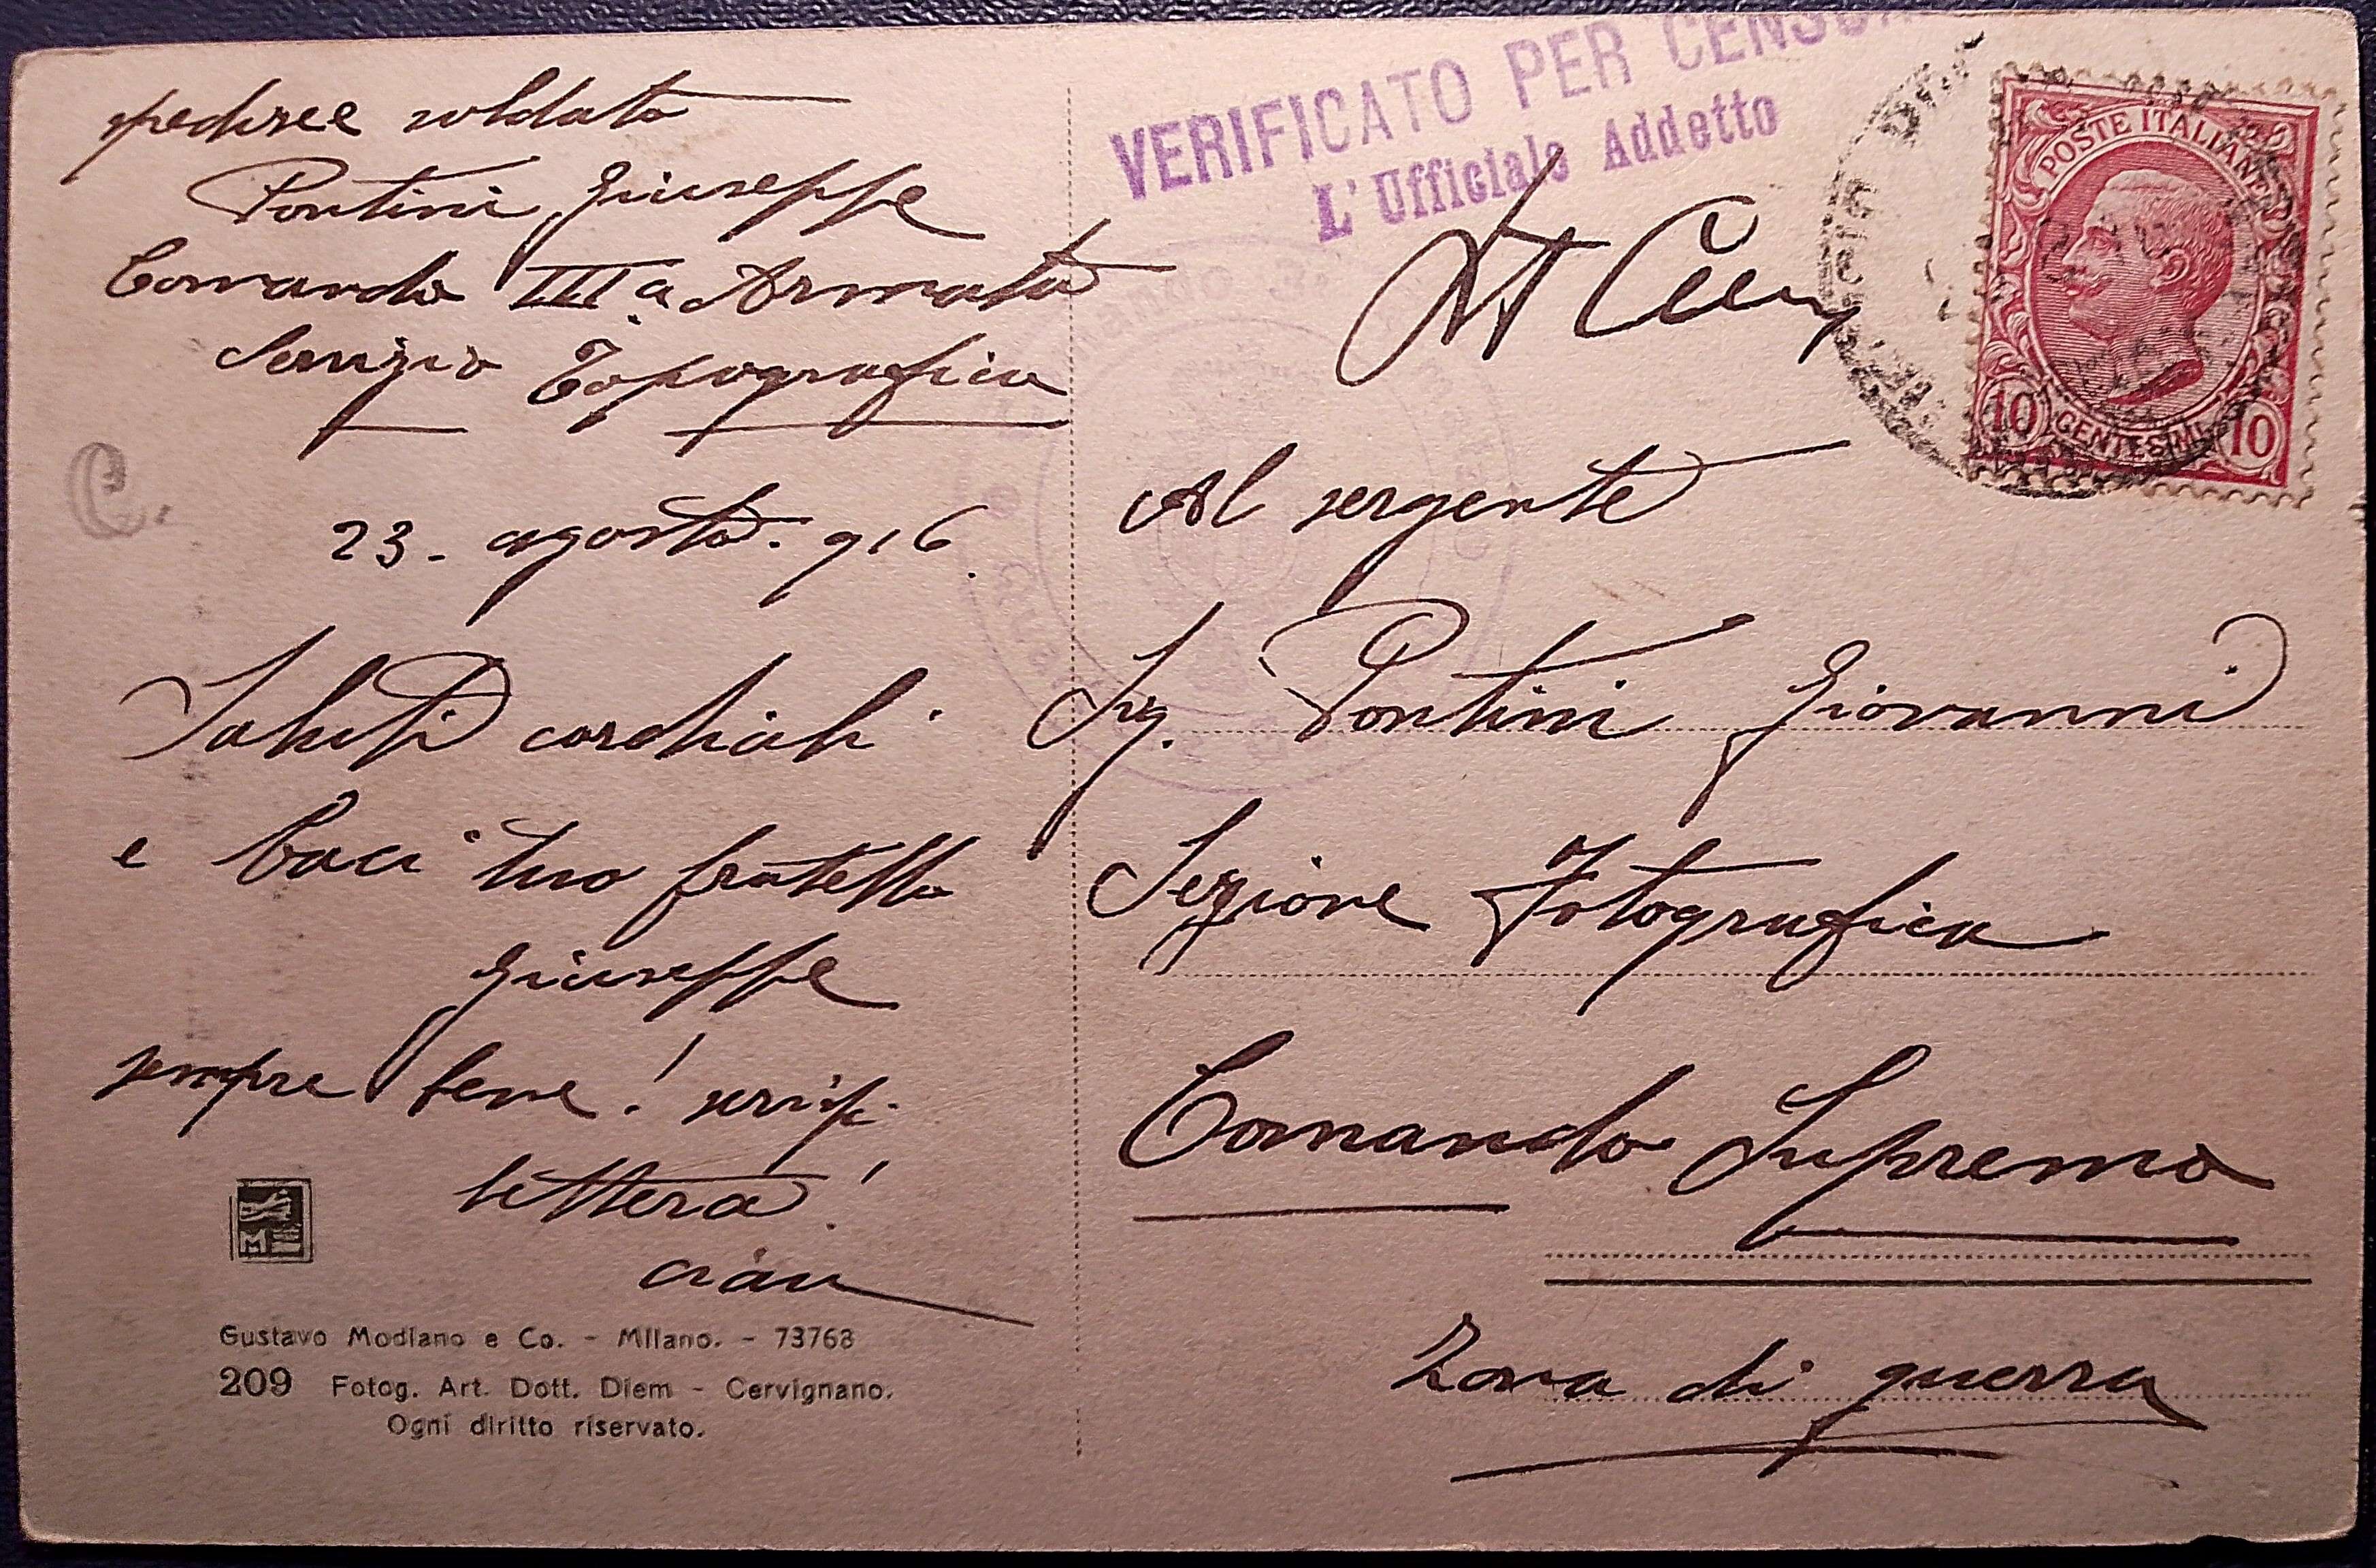 spedisce soldato
Pontini Giuseppe
Comando IIIa Armata
Servizio Topografico
C.
23 - agosto - 916.
Saluti cordiali
e baci tuo fratello
Giuseppe
sempre bene! scrivi
lettera!
ciau
M
Gustavo Modiano e Co. - Milano. - 73768
209 Fotog. Art. Dott. Diem - Cervignano.
Ogni diritto riservato.
VERIFICATO PER
L'Ufficiale Addetto
POSTE ITALIANE
10 CENTESIMI 10
Al sergente
Sig. Pontini Giovanni
Sezione Fotografica
Comando Supremo
Zona di guerra